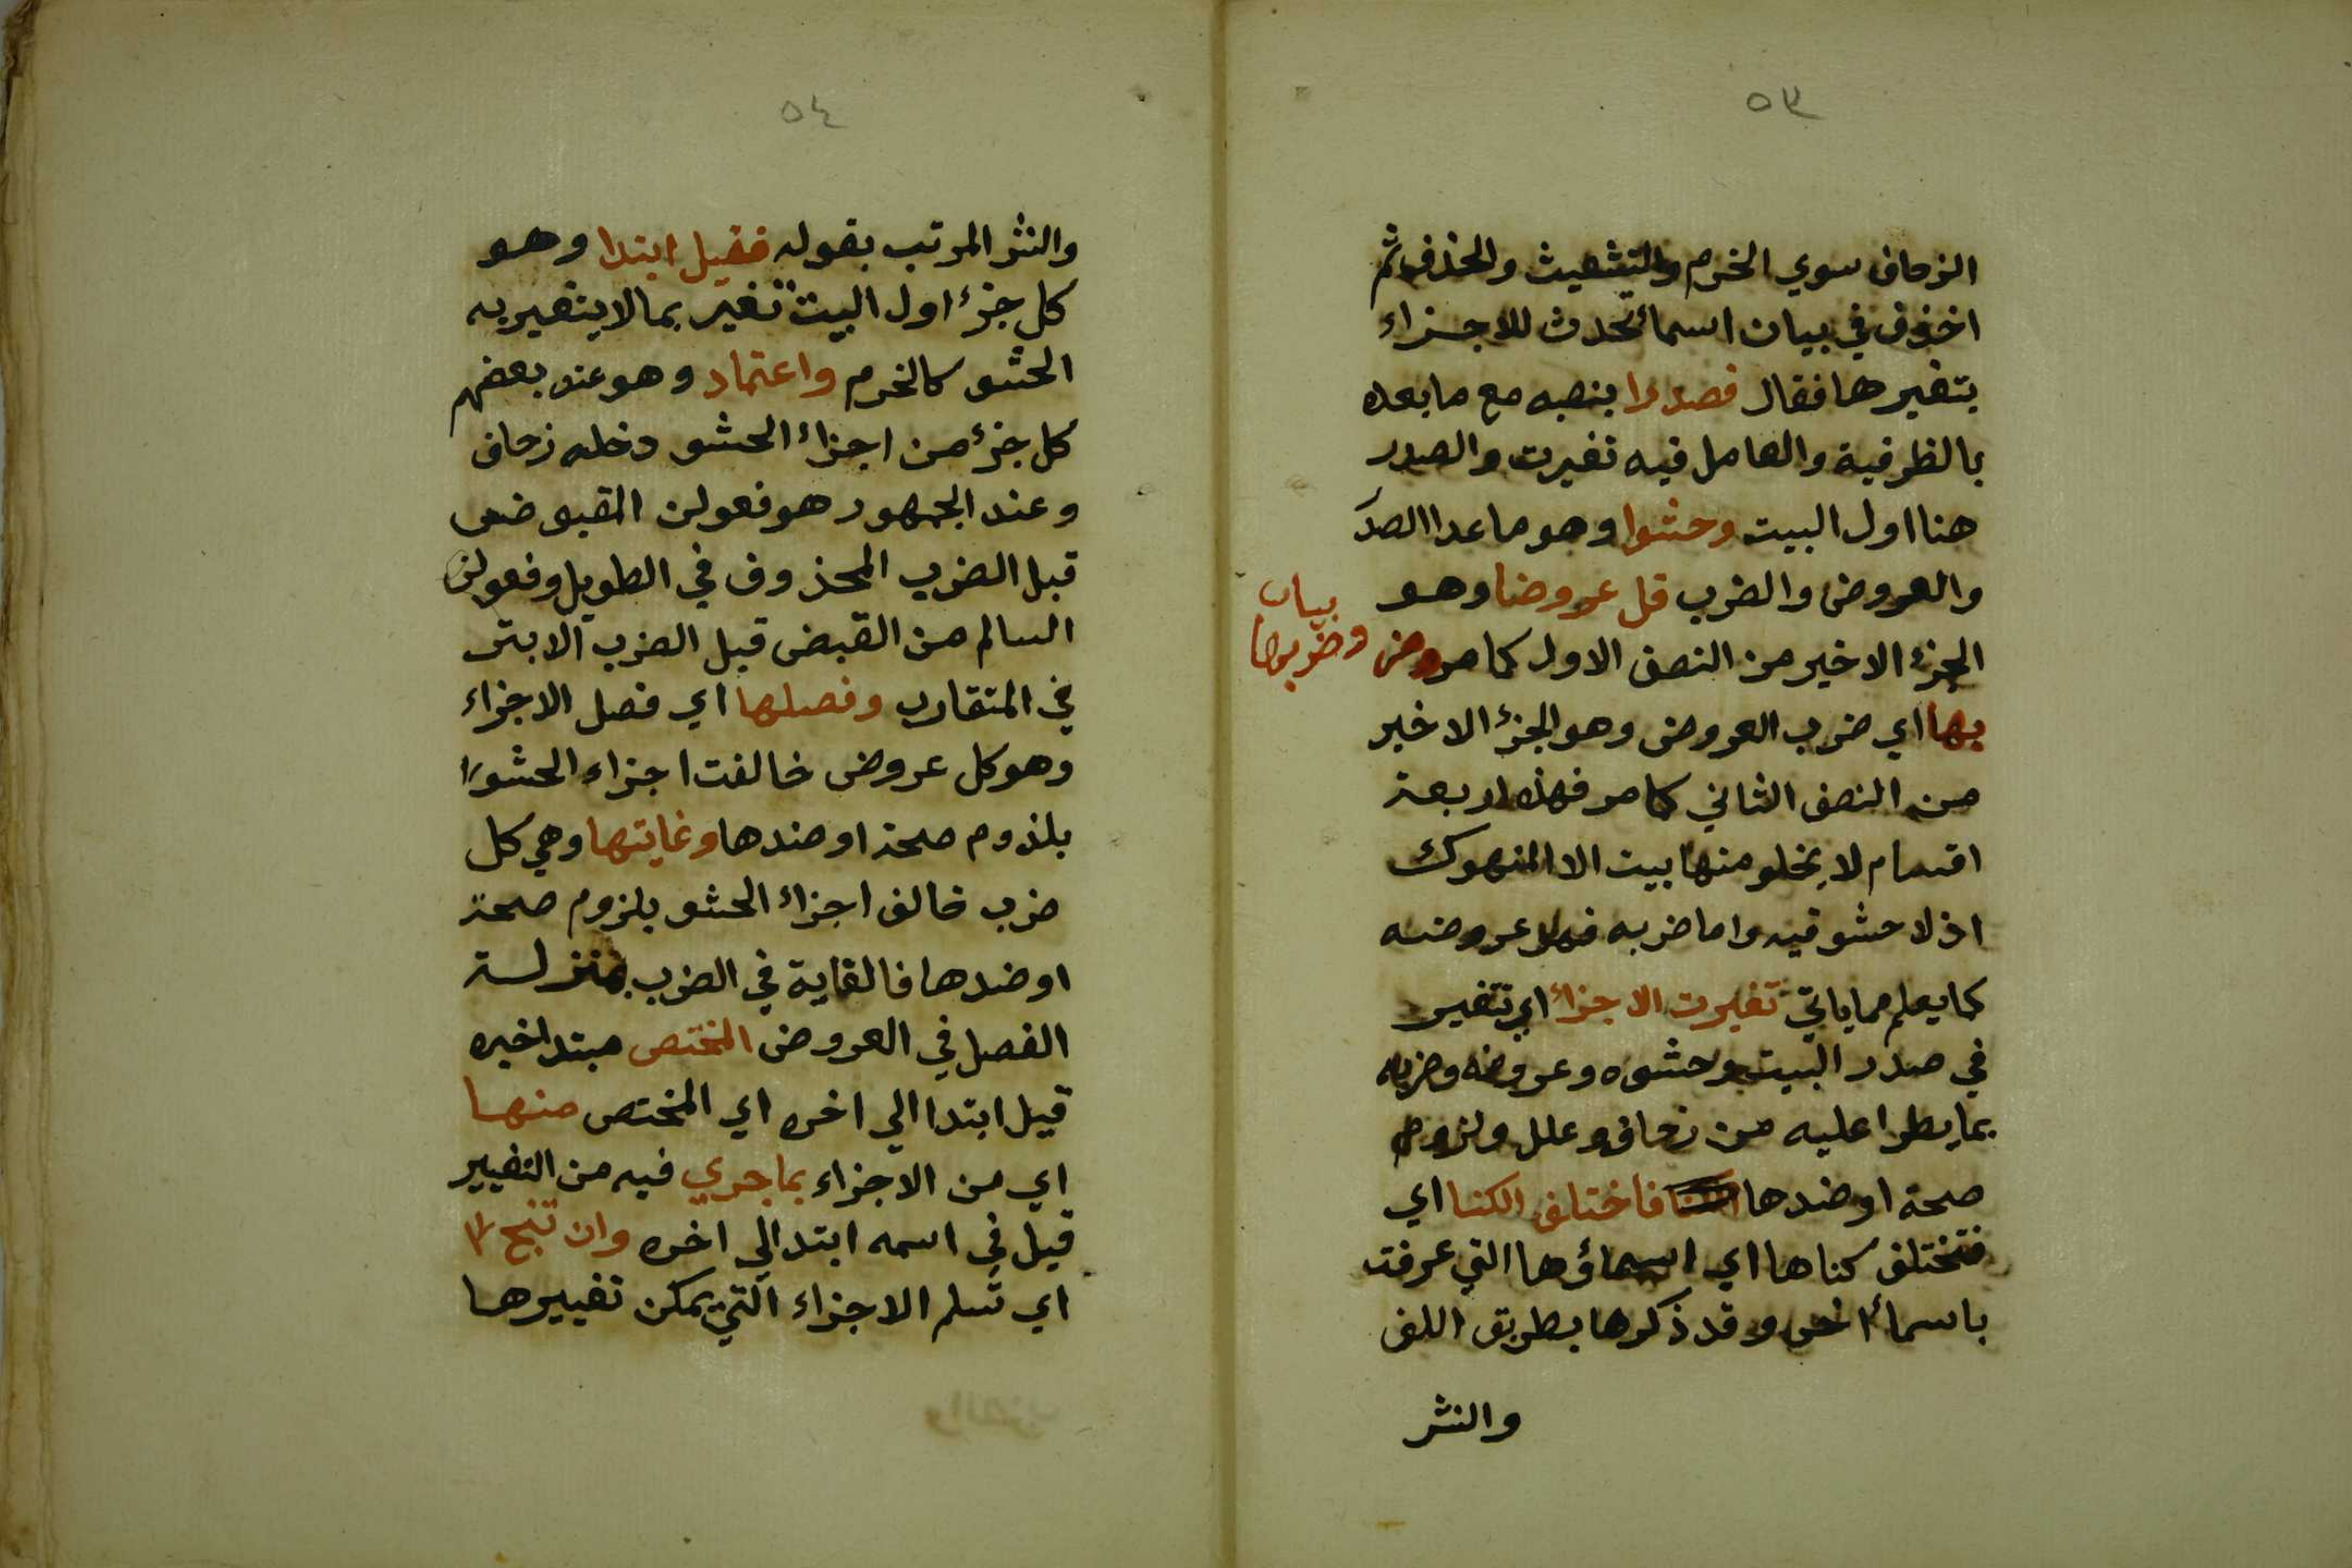 ٥٣
الزحاف سوي الخرم والتشعيث والحذف ثم
اخذ في بيان اسما تحدث للاجزاء
بتغيرها فقال فصدرا بنصبه مع ما بعده
بالظرفية والعامل فيه تغيرت والصدر
هنا اول البيت وحشوا وهو ما عدا الصدر
والعروض والضرب قل عروضا وهو
الجزء الاخير من النصف الاول كما مر وضر
بيان
وضربها
بها اي ضرب العروض وهو الجزء الاخير
من النصف الثاني كما مر فهذه اربعة
اقسام لا يخلو منها بيت الا المنهوك
اذ لا حشو فيه واما ضربه فهو عروضه
كما يعلم مما ياتي تغيرت الاجزاء اي تتغير
في صدر البيت وحشوه وعروضه وضربه
بما يطرا عليه من زحاف وعلل ولزوم
صحة او ضدها فاختلف الكنا اي
فتختلف كناها اي اسماؤها التي عرفت
باسماء اخر وقد ذكرها بطريق اللف
والنشر
٥٤
والنشر المرتب بقوله فقيل ابتدا وهو
كل جزء اول البيت تغير بما لا يتغير به
الحشو كالخرم واعتماد وهو عند بعضهم
كل جزء من اجزاء الحشو دخله زحاف
وعند الجمهور هو فعولن المقبوض
قبل الضرب المحذوف في الطويل وفعولن
السالم من القبض قبل الضرب الابتر
في المتقارب وفصلها اي فصل الاجزاء
وهو كل عروض خالفت اجزاء الحشو
بلزوم صحة او ضدها وغايتها وهي كل
ضرب خالف اجزاء الحشو بلزوم صحة
او ضدها فالغاية في الضرب بمنزلة
الفصل في العروض المختص مبتدا خبره
قيل ابتدا الي اخره اي المختص منها
اي من الاجزاء بما جري فيه من التغيير
قيل في اسمه ابتدا الي اخره وان تنج
اي تسلم الاجزاء التي يمكن تغييرها